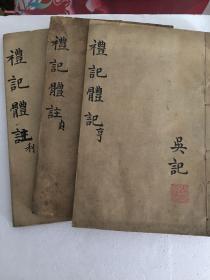 禮記體記亨
吳記
禮記體註貞
禮記體註利